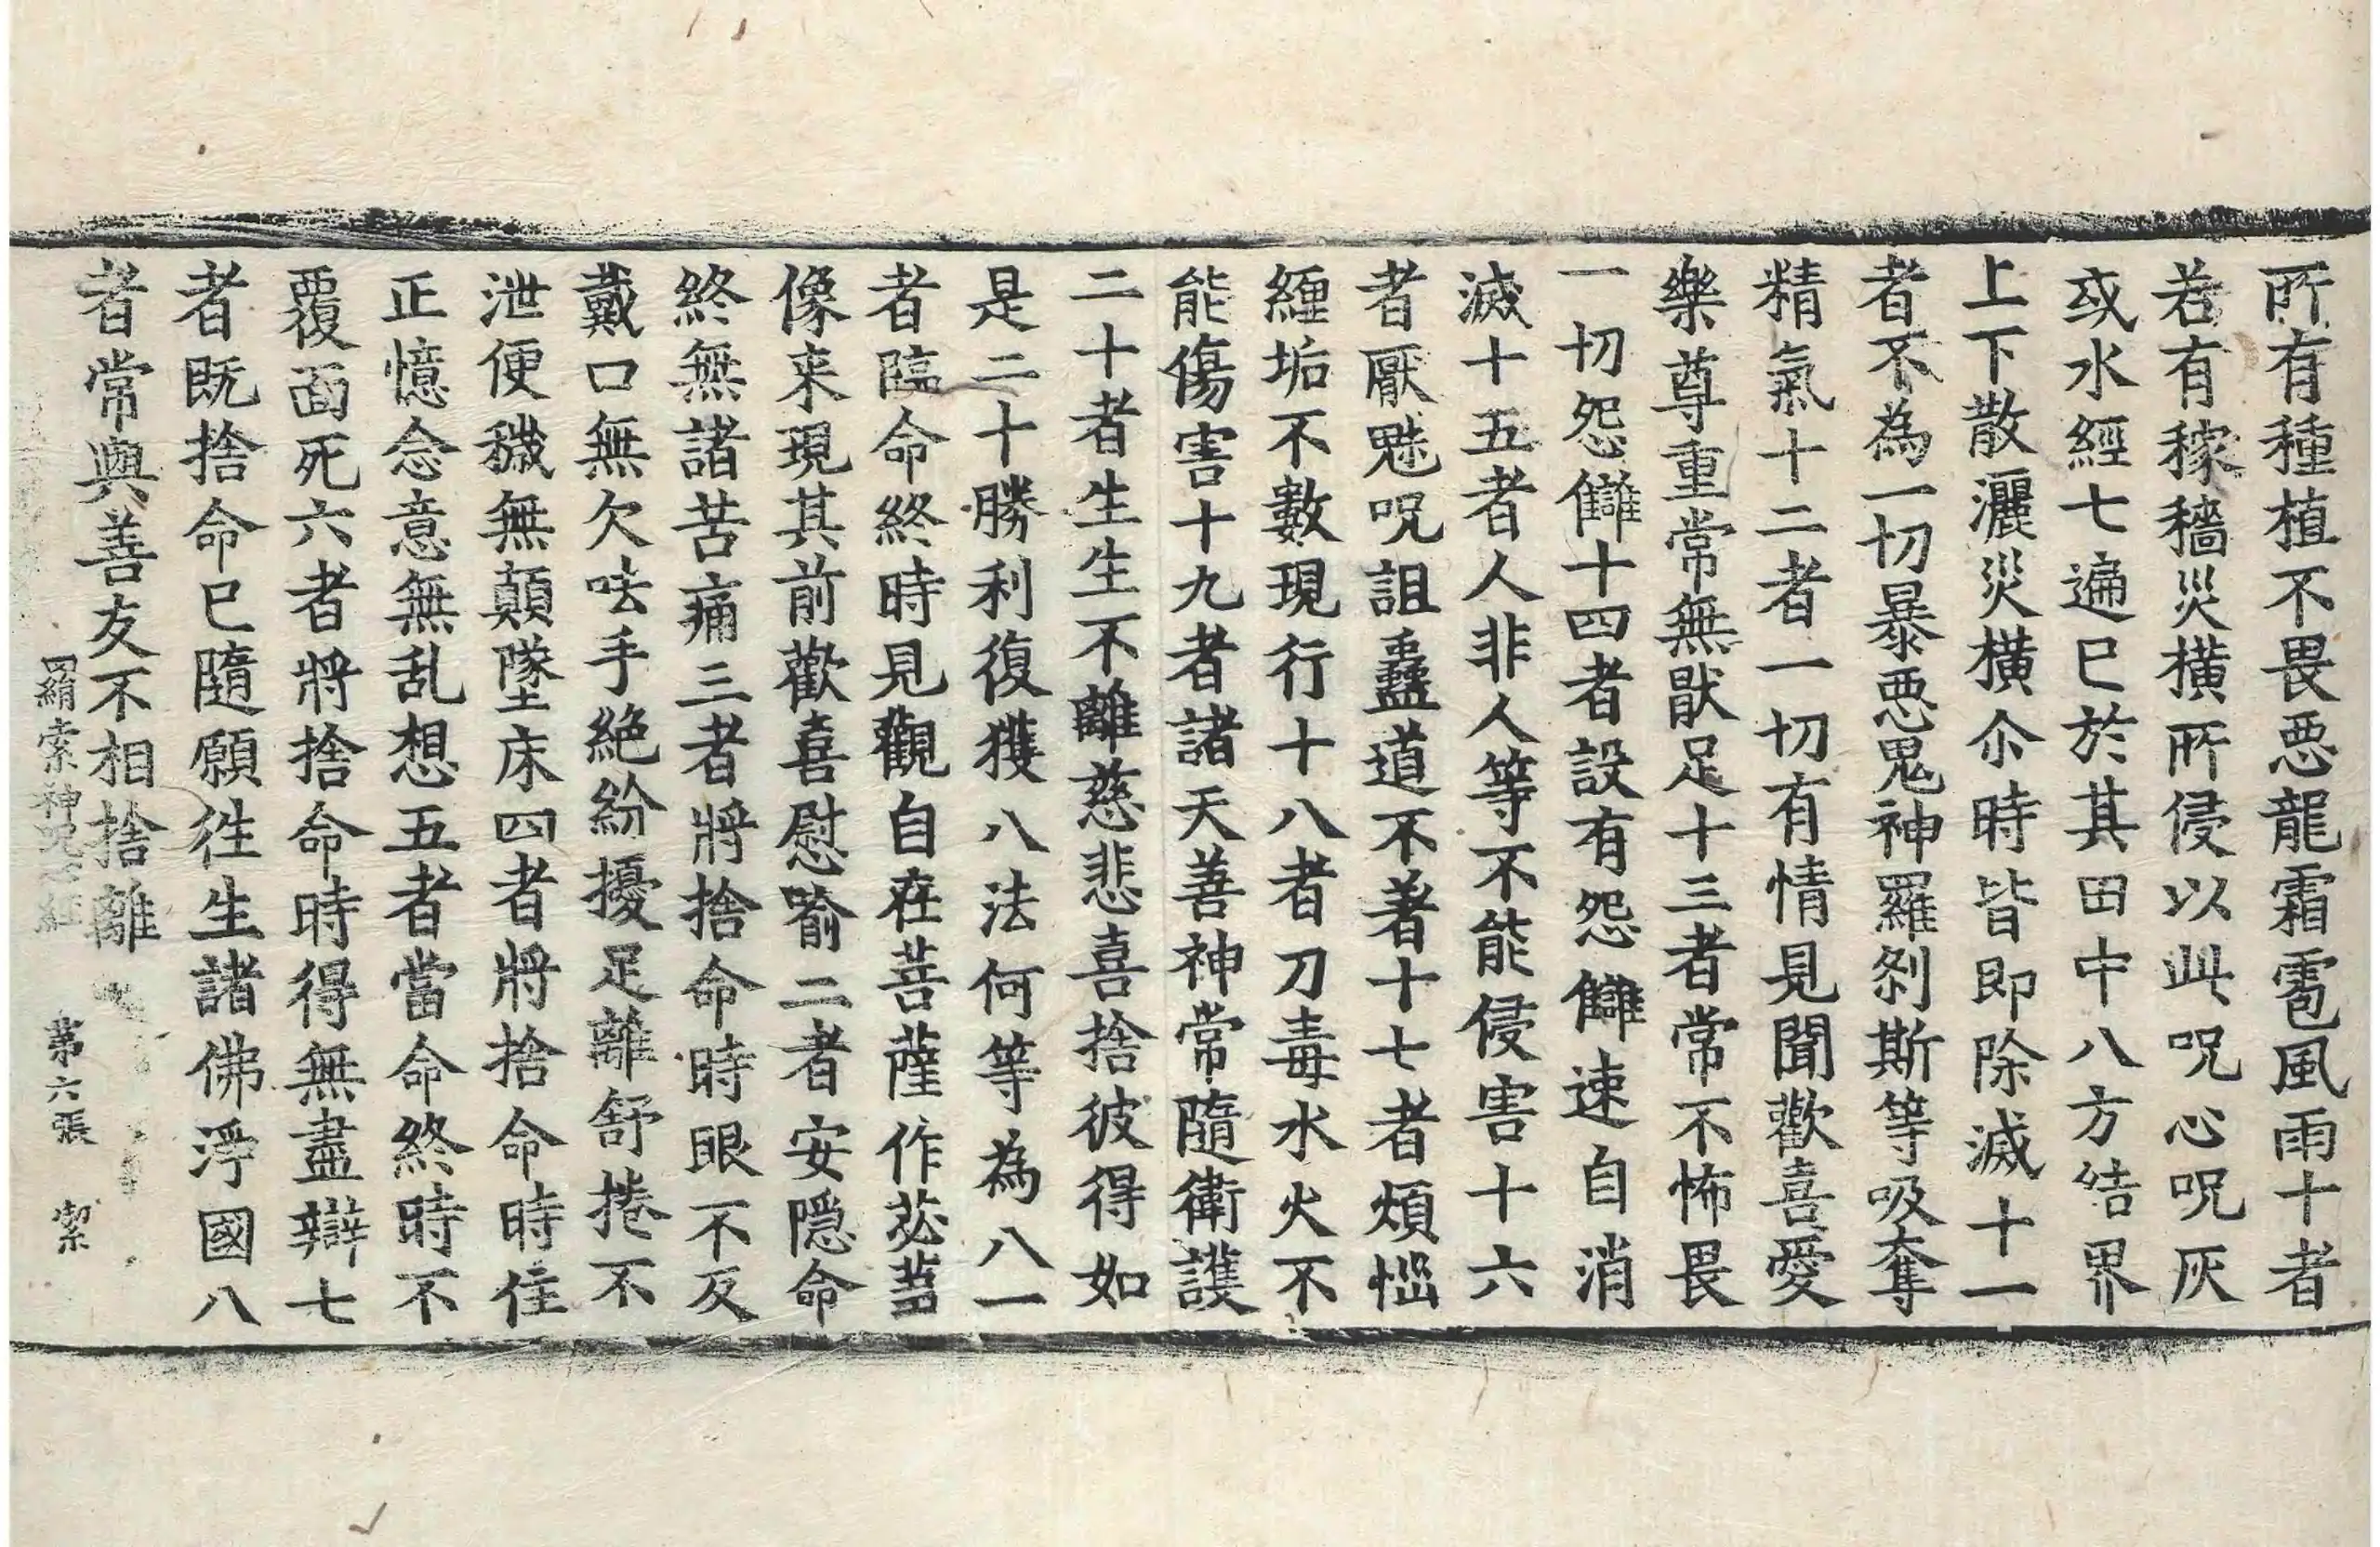 所有種植不畏惡龍霜雹風雨十者
若有稼穡災橫所侵以此呪心呪灰
或水經七遍已於其田中八方結界
上下散灑災橫尒時皆即除滅十一
者不為一切暴惡鬼神羅剎斯等吸奪
精氣十二者一切有情見聞歡喜愛
樂尊重常無猒足十三者常不怖畏
一切怨讎十四者設有怨讎速自消
滅十五者人非人等不能侵害十六
者厭魅呪詛蠱道不著十七者煩惱
纏垢不數現行十八者刀毒水火不
能傷害十九者諸天善神常隨衛護
二十者生生不離慈悲喜捨彼得如
是二十勝利復獲八法何等為八一
者臨命終時見觀自在菩薩作苾蒭
像来現其前歡喜慰喻二者安隱命
終無諸苦痛三者將捨命時眼不反
戴口無欠呿手絕紛擾足離舒捲不
泄便穢無顛墜床四者將捨命時住
正憶念意無乱想五者當命終時不
覆面死六者將捨命時得無盡辯七
者既捨命已隨願往生諸佛淨國八
者常與善友不相捨離
羂索神呪心經 第六張 潔